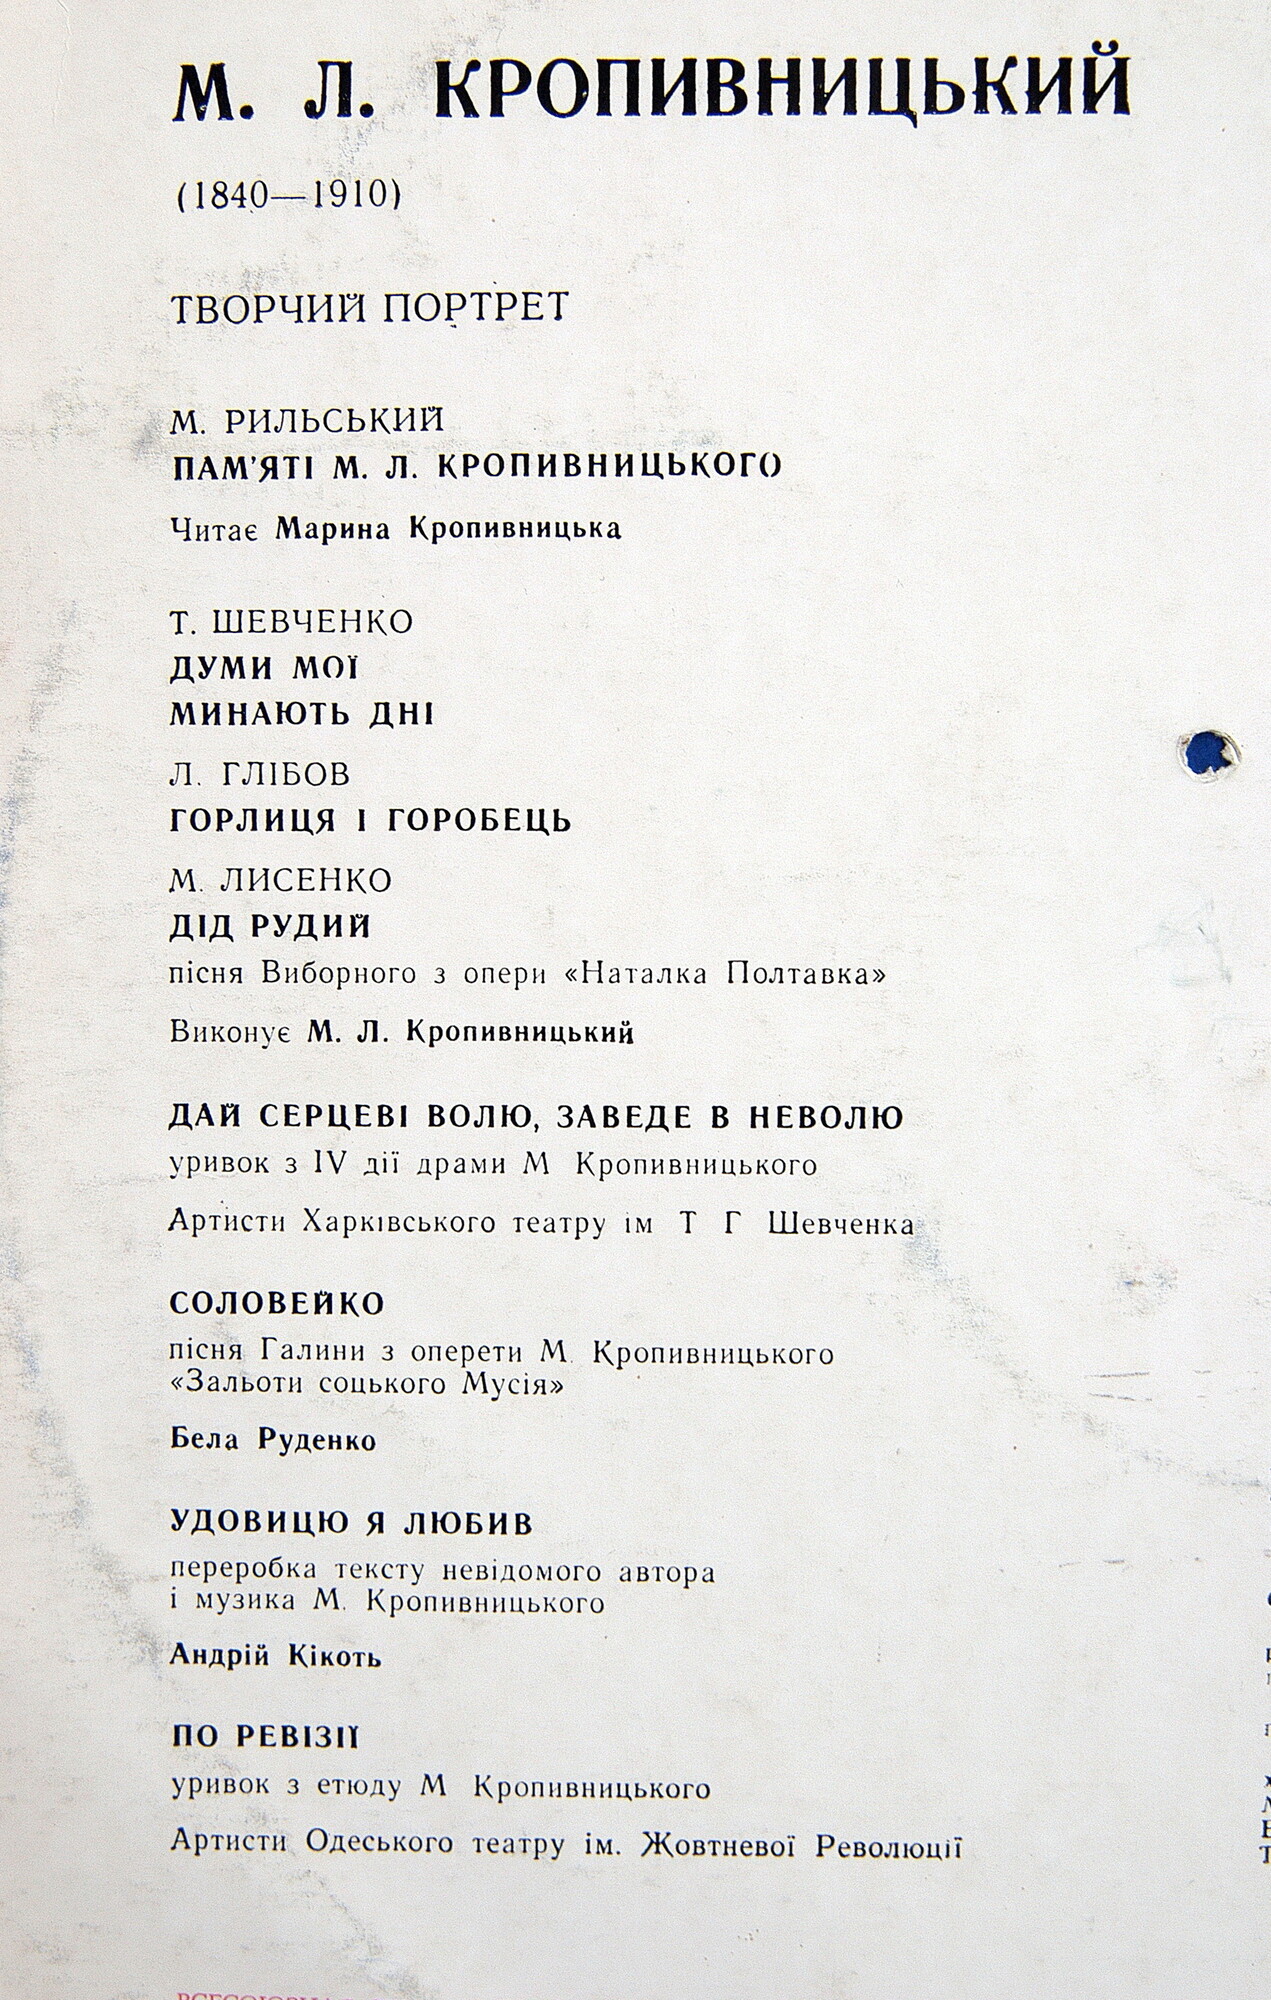 М. Л. КРОПИВНИЦЬКИЙ
(1840—1910)
ТВОРЧИЙ ПОРТРЕТ
М. РИЛЬСЬКИЙ
ПАМ'ЯТІ М. Л. КРОПИВНИЦЬКОГО
Читає Марина Кропивницька
Т. ШЕВЧЕНКО
ДУМИ МОЇ
МИНАЮТЬ ДНІ
Л. ГЛІБОВ
ГОРЛИЦЯ І ГОРОБЕЦЬ
М. ЛИСЕНКО
ДІД РУДИЙ
пісня Виборного з опери «Наталка Полтавка»
Виконує М. Л. Кропивницький
ДАЙ СЕРЦЕВІ ВОЛЮ, ЗАВЕДЕ В НЕВОЛЮ
уривок з IV дії драми М Кропивницького
Артисти Харківського театру ім Т Г Шевченка
СОЛОВЕЙКО
пісня Галини з оперети М. Кропивницького
«Зальоти соцького Мусія»
Бела Руденко
УДОВИЦЮ Я ЛЮБИВ
переробка тексту невідомого автора
і музика М. Кропивницького
Андрій Кікоть
ПО РЕВІЗІЇ
уривок з етюду М Кропивницького
Артисти Одеського театру ім. Жовтневої Революції